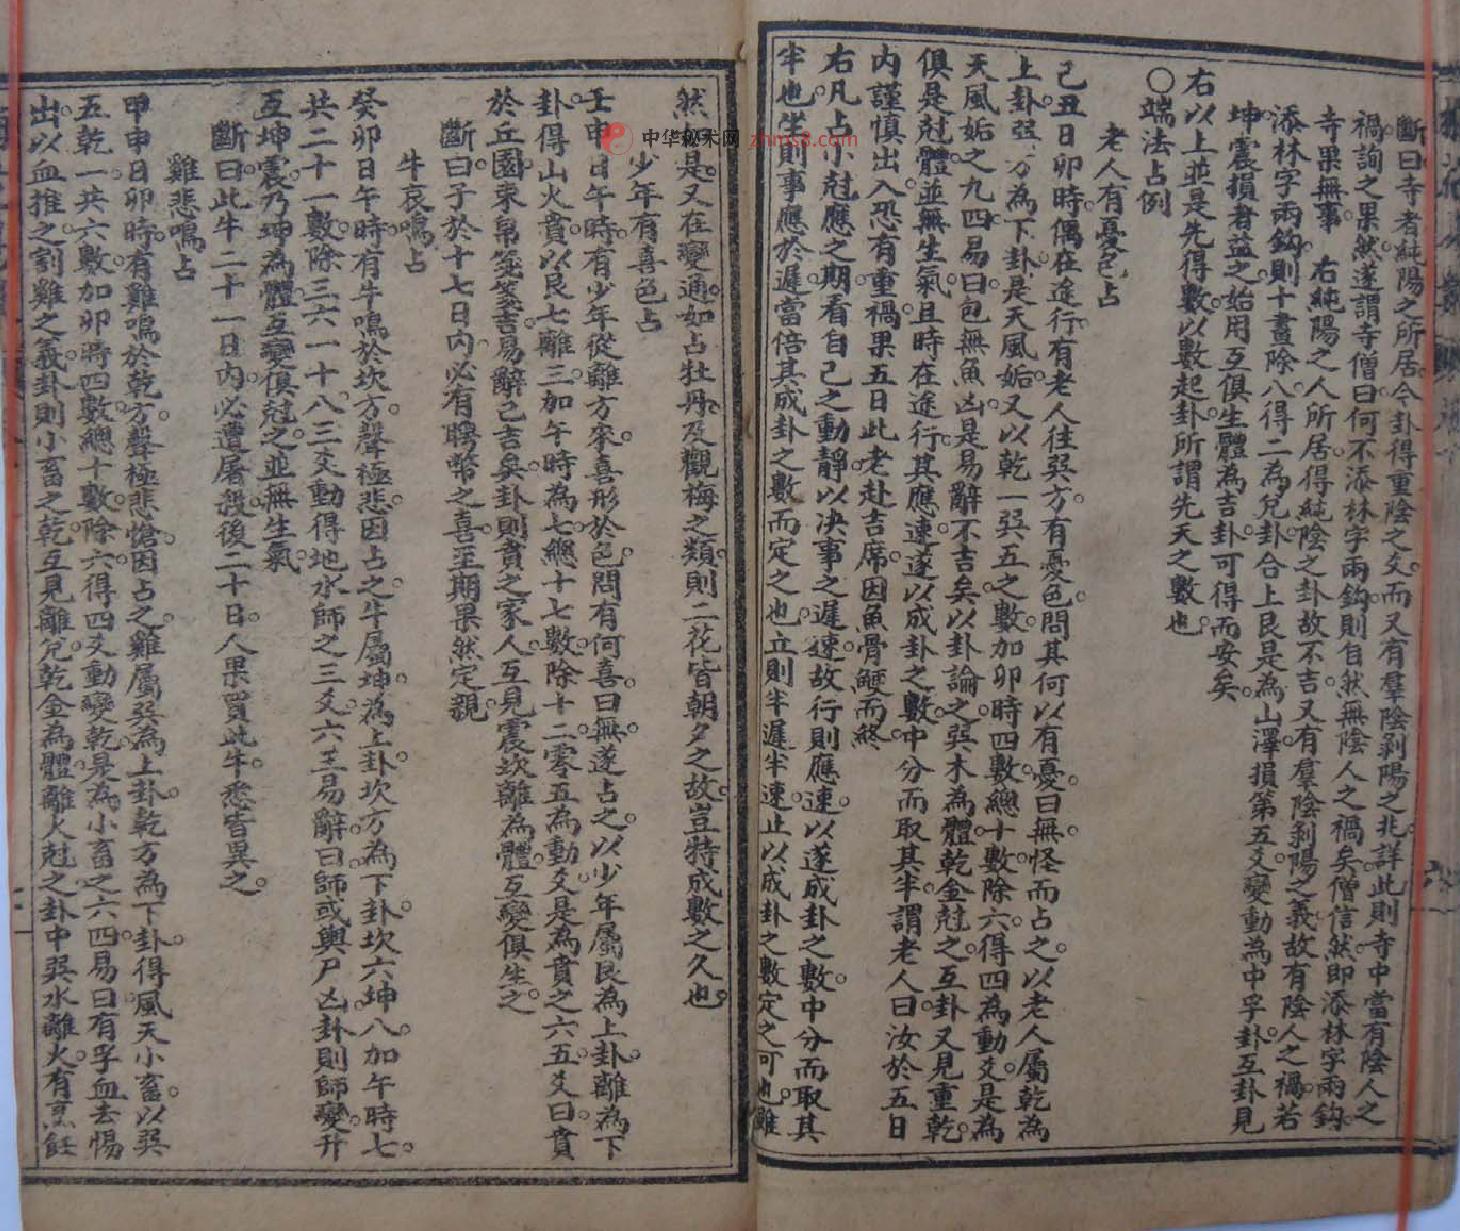 斷曰寺者純陽之所居今卦得重陰之爻而又有羣陰剝陽之兆詳此則寺中當有陰人之
禍詢之果然遂謂寺僧曰何不添林字兩鈎則自然無陰人之禍矣僧信然即添林字兩鈎
寺果無事 右純陽之人所居得純陰之卦故不吉又有羣陰剝陽之義故有陰人之禍若
添林字兩鈎則十畫除八得二為兌卦合上艮是為山澤損第五爻變動為中孚卦互卦見
坤震損者益之始用互俱生體為吉卦可得而安矣
右以上並是先得數以數起卦所謂先天之數也
〇端法占例
老人有憂色占
己丑日卯時偶在途行有老人往巽方有憂色問其何以有憂曰無怪而占之以老人屬乾為
上卦巽方為下卦是天風姤又以乾一巽五之數加卯時四數總十數除六得四為動爻是為
天風姤之九四易曰包無魚凶是易辭不吉矣以卦論之巽木為體乾金尅之互卦又見重乾
俱是尅體並無生氣且時在途行其應速遂以成卦之數中分而取其半謂老人曰汝於五日
內謹慎出入恐有重禍果五日此老赴吉席因魚骨鯁而終
右凡占小尅應之期看自己之動靜以決事之遲速故行則應速以遂成卦之數中分而取其
半也坐則事應於遲當倍其成卦之數而定之也立則半遲半速止以成卦之數定之可也雖
然是又在變通如占牡丹及觀梅之類則二花皆朝夕之故豈特成數之久也
少年有喜色占
壬申日午時有少年從離方來喜形於色問有何喜曰無遂占之以少年屬艮為上卦離為下
卦得山火賁以艮七離三加午時為七總十七數除十二零五為動爻是為賁之六五爻曰賁
於丘園束帛箋箋吉易辭已吉矣卦則賁之家人互見震坎離為體互變俱生之
斷曰子於十七日內必有聘幣之喜至期果然定親
牛哀鳴占
癸卯日午時有牛鳴於坎方聲極悲因占之牛屬坤為上卦坎方為下卦坎六坤八加午時七
共二十一數除三六一十八三爻動得地水師之三爻六三易辭曰師或輿尸凶卦則師變升
互坤震乃坤為體互變俱尅之並無生氣
斷曰此牛二十一日內必遭屠殺後二十日人果買此牛悉皆異之
雞悲鳴占
甲申日卯時有雞鳴於乾方聲極悲愴因占之雞屬巽為上卦乾方為下卦得風天小畜以巽
五乾一共六數加卯時四數總十數除六得四爻動變乾是為小畜之六四易曰有孚血去惕
出以血推之割雞之義卦則小畜之乾互見離兌乾金為體離火尅之卦中巽水離火有烹飪
中华秘术网 zhms8.com